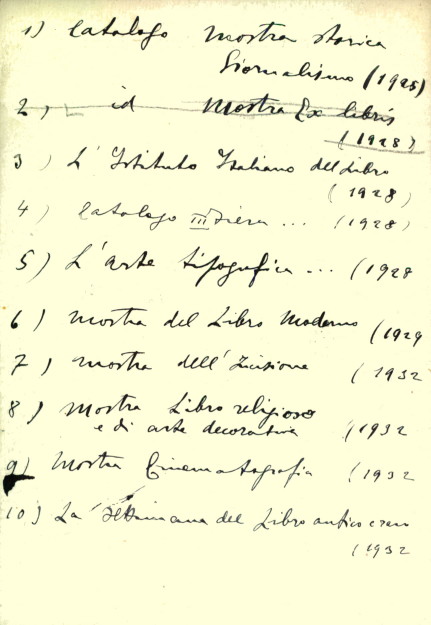 1) Catalogo Mostra storica
Giornalismo (1925)
2) id Mostra Ex libris
(1928)
3) L'Istituto Italiano del Libro
(1928)
4) Catalogo III Fiera ... (1928)
5) L'arte tipografica ... (1928
6) Mostra del Libro Moderno (1929
7) Mostra dell'Incisione (1932
8) Mostra Libro religioso
e di arte decorativa (1932
9) Mostra Cinematografia (1932
10) La Settimana del Libro antico e
(1932